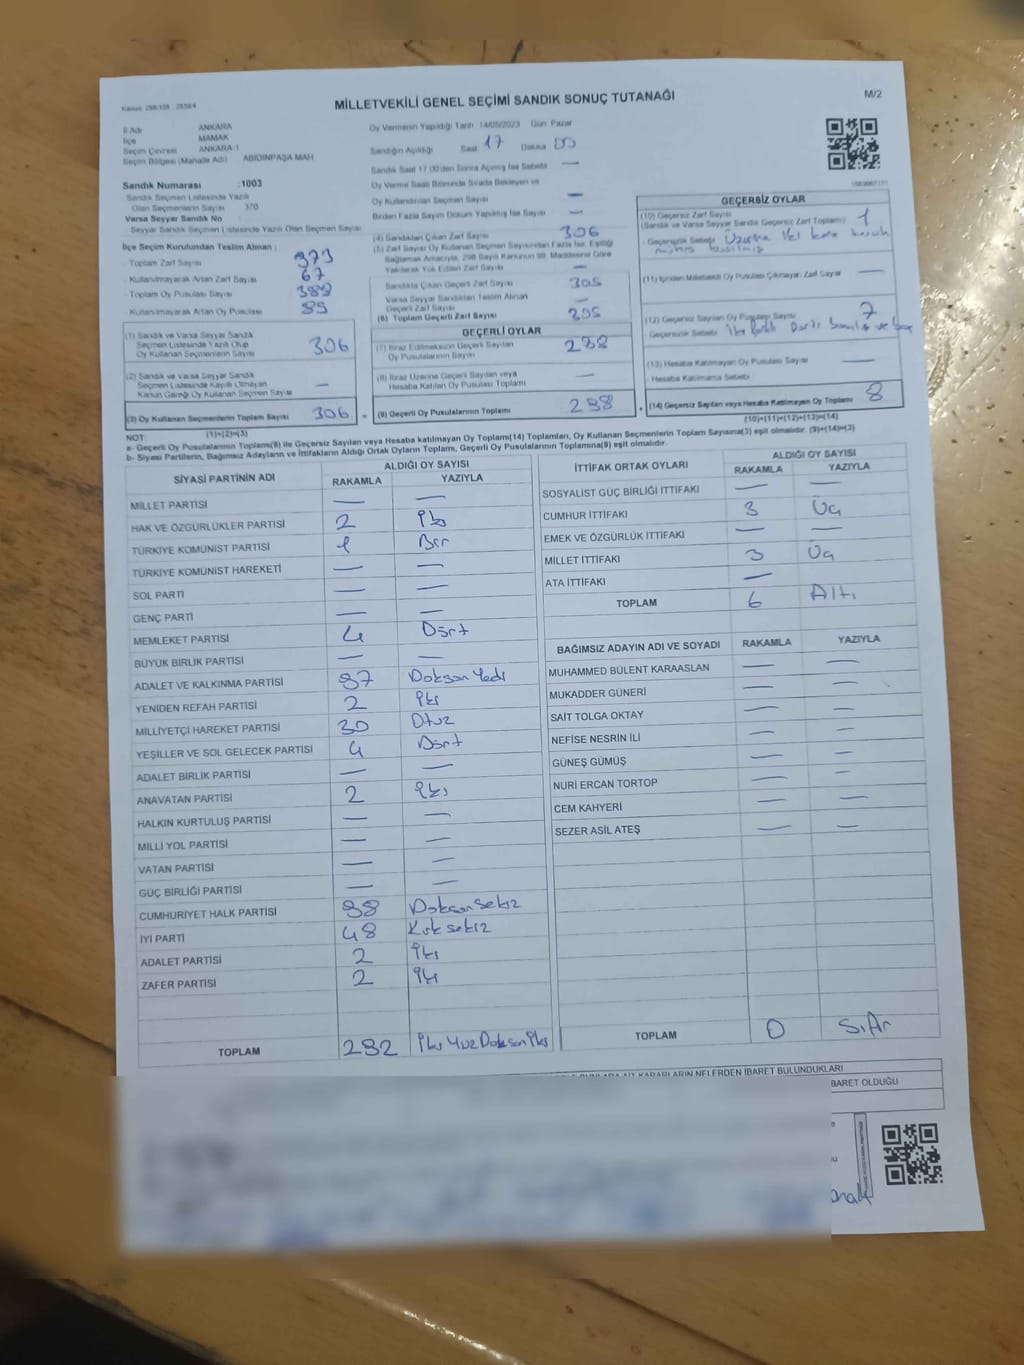 Kanun: 298/108 2839/4
MİLLETVEKİLİ GENEL SEÇİMİ SANDIK SONUÇ TUTANAĞI
M/2
İl Adı ANKARA
İlçe MAMAK
Seçim Çevresi ANKARA-1
Seçim Bölgesi (Mahalle Adı) ABİDİNPAŞA MAH
Oy Vermenin Yapıldığı Tarih 14/05/2023 Gün Pazar
Sandığın Açıldığı Saat 17 Dakika 00
Sandık Saat 17:00'den Sonra Açılmış İse Sebebi —
Oy Verme Saati Bitiminde Sırada Bekleyen ve
Oy Kullandırılan Seçmen Sayısı —
Birden Fazla Sayım Döküm Yapılmış İse Sayısı —
Sandık Numarası :1003
Sandık Seçmen Listesinde Yazılı
Olan Seçmenlerin Sayısı 370
Varsa Seyyar Sandık No :
Seyyar Sandık Seçmen Listesinde Yazılı Olan Seçmen Sayısı
İlçe Seçim Kurulundan Teslim Alınan :
Toplam Zarf Sayısı 373
Kullanılmayarak Artan Zarf Sayısı 67
Toplam Oy Pusulası Sayısı
Kullanılmayarak Artan Oy Pusulası
(1) Sandık ve Varsa Seyyar Sandık
Seçmen Listesinde Yazılı Olup
Oy Kullanan Seçmenlerin Sayısı 306
(2) Sandık ve Varsa Seyyar Sandık
Seçmen Listesinde Kayıtlı Olmayan
Kanun Gereği Oy Kullanan Seçmen Sayısı —
(3) Oy Kullanan Seçmenlerin Toplam Sayısı 306
(1)+(2)=(3)
(4) Sandıktan Çıkan Zarf Sayısı 306
(5) Zarf Sayısı Oy Kullanan Seçmen Sayısından Fazla İse, Eşitliği
Sağlamak Amacıyla, 298 Sayılı Kanunun 98. Maddesine Göre
Yakılarak Yok Edilen Zarf Sayısı —
Sandıkta Çıkan Geçerli Zarf Sayısı 305
Varsa Seyyar Sandıktan Teslim Alınan
Geçerli Zarf Sayısı —
(6) Toplam Geçerli Zarf Sayısı
GEÇERLİ OYLAR
(7) İtiraz Edilmeksizin Geçerli Sayılan
Oy Pusulalarının Sayısı 298
(8) İtiraz Üzerine Geçerli Sayılan veya
Hesaba Katılan Oy Pusulası Toplamı —
(9) Geçerli Oy Pusulalarının Toplamı 298
GEÇERSİZ OYLAR
(10) Geçersiz Zarf Sayısı
(Sandık ve Varsa Seyyar Sandık Geçersiz Zarf Toplamı) 1
Geçersizlik Sebebi
(11) İçinden Milletvekili Oy Pusulası Çıkmayan Zarf Sayısı —
(12) Geçersiz Sayılan Oy Pusulası Sayısı 7
Geçersizlik Sebebi
(13) Hesaba Katılmayan Oy Pusulası Sayısı —
Hesaba Katılmama Sebebi
(14) Geçersiz Sayılan veya Hesaba Katılmayan Oy Toplamı 8
(10)+(11)+(12)+(13)=(14)
NOT:
a- Geçerli Oy Pusulalarının Toplamı(9) ile Geçersiz Sayılan veya Hesaba katılmayan Oy Toplamı(14) Toplamları, Oy Kullanan Seçmenlerin Toplam Sayısına(3) eşit olmalıdır. (9)+(14)=(3)
b- Siyasi Partilerin, Bağımsız Adayların ve İttifakların Aldığı Ortak Oyların Toplamı, Geçerli Oy Pusulalarının Toplamına(9) eşit olmalıdır.
SİYASİ PARTİNİN ADI ALDIĞI OY SAYISI
RAKAMLA YAZIYLA
MİLLET PARTİSİ — —
HAK VE ÖZGÜRLÜKLER PARTİSİ 2 İki
TÜRKİYE KOMÜNİST PARTİSİ 1 Bir
TÜRKİYE KOMÜNİST HAREKETİ — —
SOL PARTİ — —
GENÇ PARTİ — —
MEMLEKET PARTİSİ 4 Dört
BÜYÜK BİRLİK PARTİSİ — —
ADALET VE KALKINMA PARTİSİ 97 Doksan Yedi
YENİDEN REFAH PARTİSİ 2 İki
MİLLİYETÇİ HAREKET PARTİSİ 30 Otuz
YEŞİLLER VE SOL GELECEK PARTİSİ 4 Dört
ADALET BİRLİK PARTİSİ — —
ANAVATAN PARTİSİ 2 İki
HALKIN KURTULUŞ PARTİSİ — —
MİLLİ YOL PARTİSİ — —
VATAN PARTİSİ — —
GÜÇ BİRLİĞİ PARTİSİ — —
CUMHURİYET HALK PARTİSİ 98 Doksan Sekiz
İYİ PARTİ 48 Kırk sekiz
ADALET PARTİSİ 2 İki
ZAFER PARTİSİ 2 İki
TOPLAM 292 İki Yüz Doksan İki
İTTİFAK ORTAK OYLARI ALDIĞI OY SAYISI
RAKAMLA YAZIYLA
SOSYALİST GÜÇ BİRLİĞİ İTTİFAKI — —
CUMHUR İTTİFAKI 3 Üç
EMEK VE ÖZGÜRLÜK İTTİFAKI — —
MİLLET İTTİFAKI 3 Üç
ATA İTTİFAKI —
TOPLAM 6 Altı
BAĞIMSIZ ADAYIN ADI VE SOYADI RAKAMLA YAZIYLA
MUHAMMED BÜLENT KARAASLAN — —
MUKADDER GÜNERİ — —
SAİT TOLGA OKTAY — —
NEFİSE NESRİN İLİ — —
GÜNEŞ GÜMÜŞ — —
NURİ ERCAN TORTOP — —
CEM KAHYERİ — —
SEZER ASİL ATEŞ — —
TOPLAM 0 Sıfır
KARARLARIN NELERDEN İBARET BULUNDUKLARI
BARET OLDUĞU